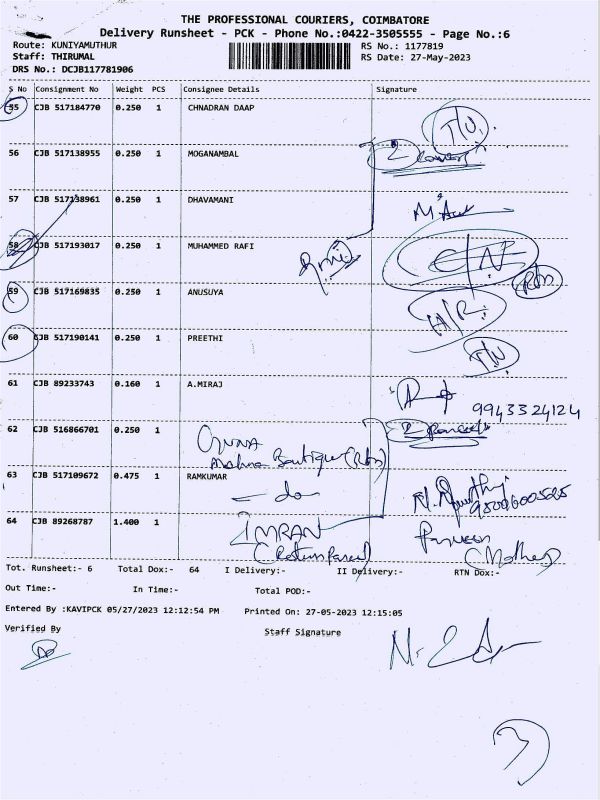 THE PROFESSIONAL COURIERS, COIMBATORE
Delivery Runsheet - PCK - Phone No.:0422-3505555 - Page No.:6
Route: KUNIYAMUTHUR RS No.: 1177819
Staff: THIRUMAL RS Date: 27-May-2023
DRS No.: DCJB117781906
S No Consignment No Weight PCS Consignee Details Signature
55 CJB 517184770 0.250 1 CHNADRAN DAAP
56 CJB 517138955 0.250 1 MOGANAMBAL 2 covers
57 CJB 517138961 0.250 1 DHAVAMANI
58 CJB 517193017 0.250 1 MUHAMMED RAFI
59 CJB 517169835 0.250 1 ANUSUYA
60 CJB 517190141 0.250 1 PREETHI
61 CJB 89233743 0.160 1 A.MIRAJ
9943324124
62 CJB 516866701 0.250 1
63 CJB 517109672 0.475 1 RAMKUMAR
- do -
64 CJB 89268787 1.400 1 IMRAN
(Mother)
Tot. Runsheet:- 6 Total Dox:- 64 I Delivery:- II Delivery:- RTN Dox:-
Out Time:- In Time:- Total POD:-
Entered By :KAVIPCK 05/27/2023 12:12:54 PM Printed On: 27-05-2023 12:15:05
Verified By Staff Signature